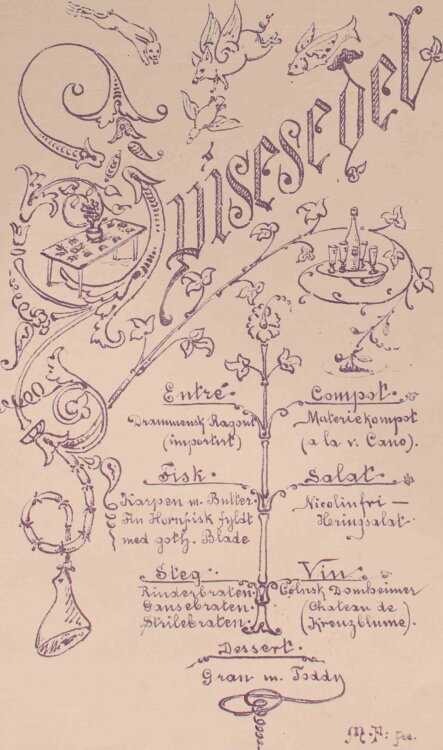 Spisesedel
Entré.
Drammensk Ragout
(importirt)
Fisk
Karpen m. Butter.
Fin Hornfisk fyldt
med goth. Blade
Steg.
Rinderbraten.
Gansebraten.
Strilebraten.
Compot.
Materiekompot
(a la v. Cano).
Salat.
Nicolinfri —
Heringsalat.
Vin.
Cölnsk Domheimer
(Chateau de
Kreuzblume).
Dessert.
Gran m. Toddy
M. P: fec.